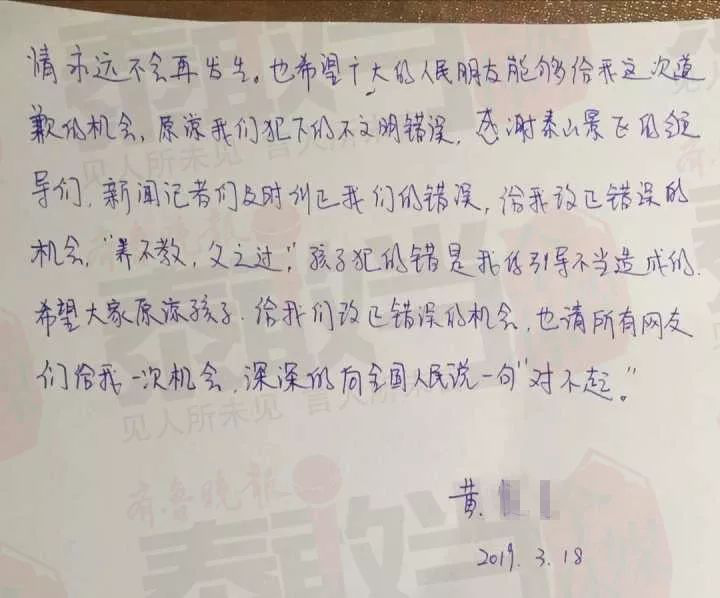 情永远不会再发生。也希望广大的人民朋友能够给我这次道
歉的机会，原谅我们犯下的不文明错误，感谢泰山景区的领
导们，新闻记者们及时纠正我们的错误，给我改正错误的
机会，“养不教，父之过”，孩子犯的错是我们引导不当造成的.
希望大家原谅孩子.给我们改正错误的机会，也请所有网友
们给我一次机会，深深的向全国人民说一句“对不起。”
黄
2019. 3. 18
泰敢当
见人所未见 言人所未
齐鲁晚报
泰敢当
见人所未见 言人所未
齐鲁晚报
泰敢当